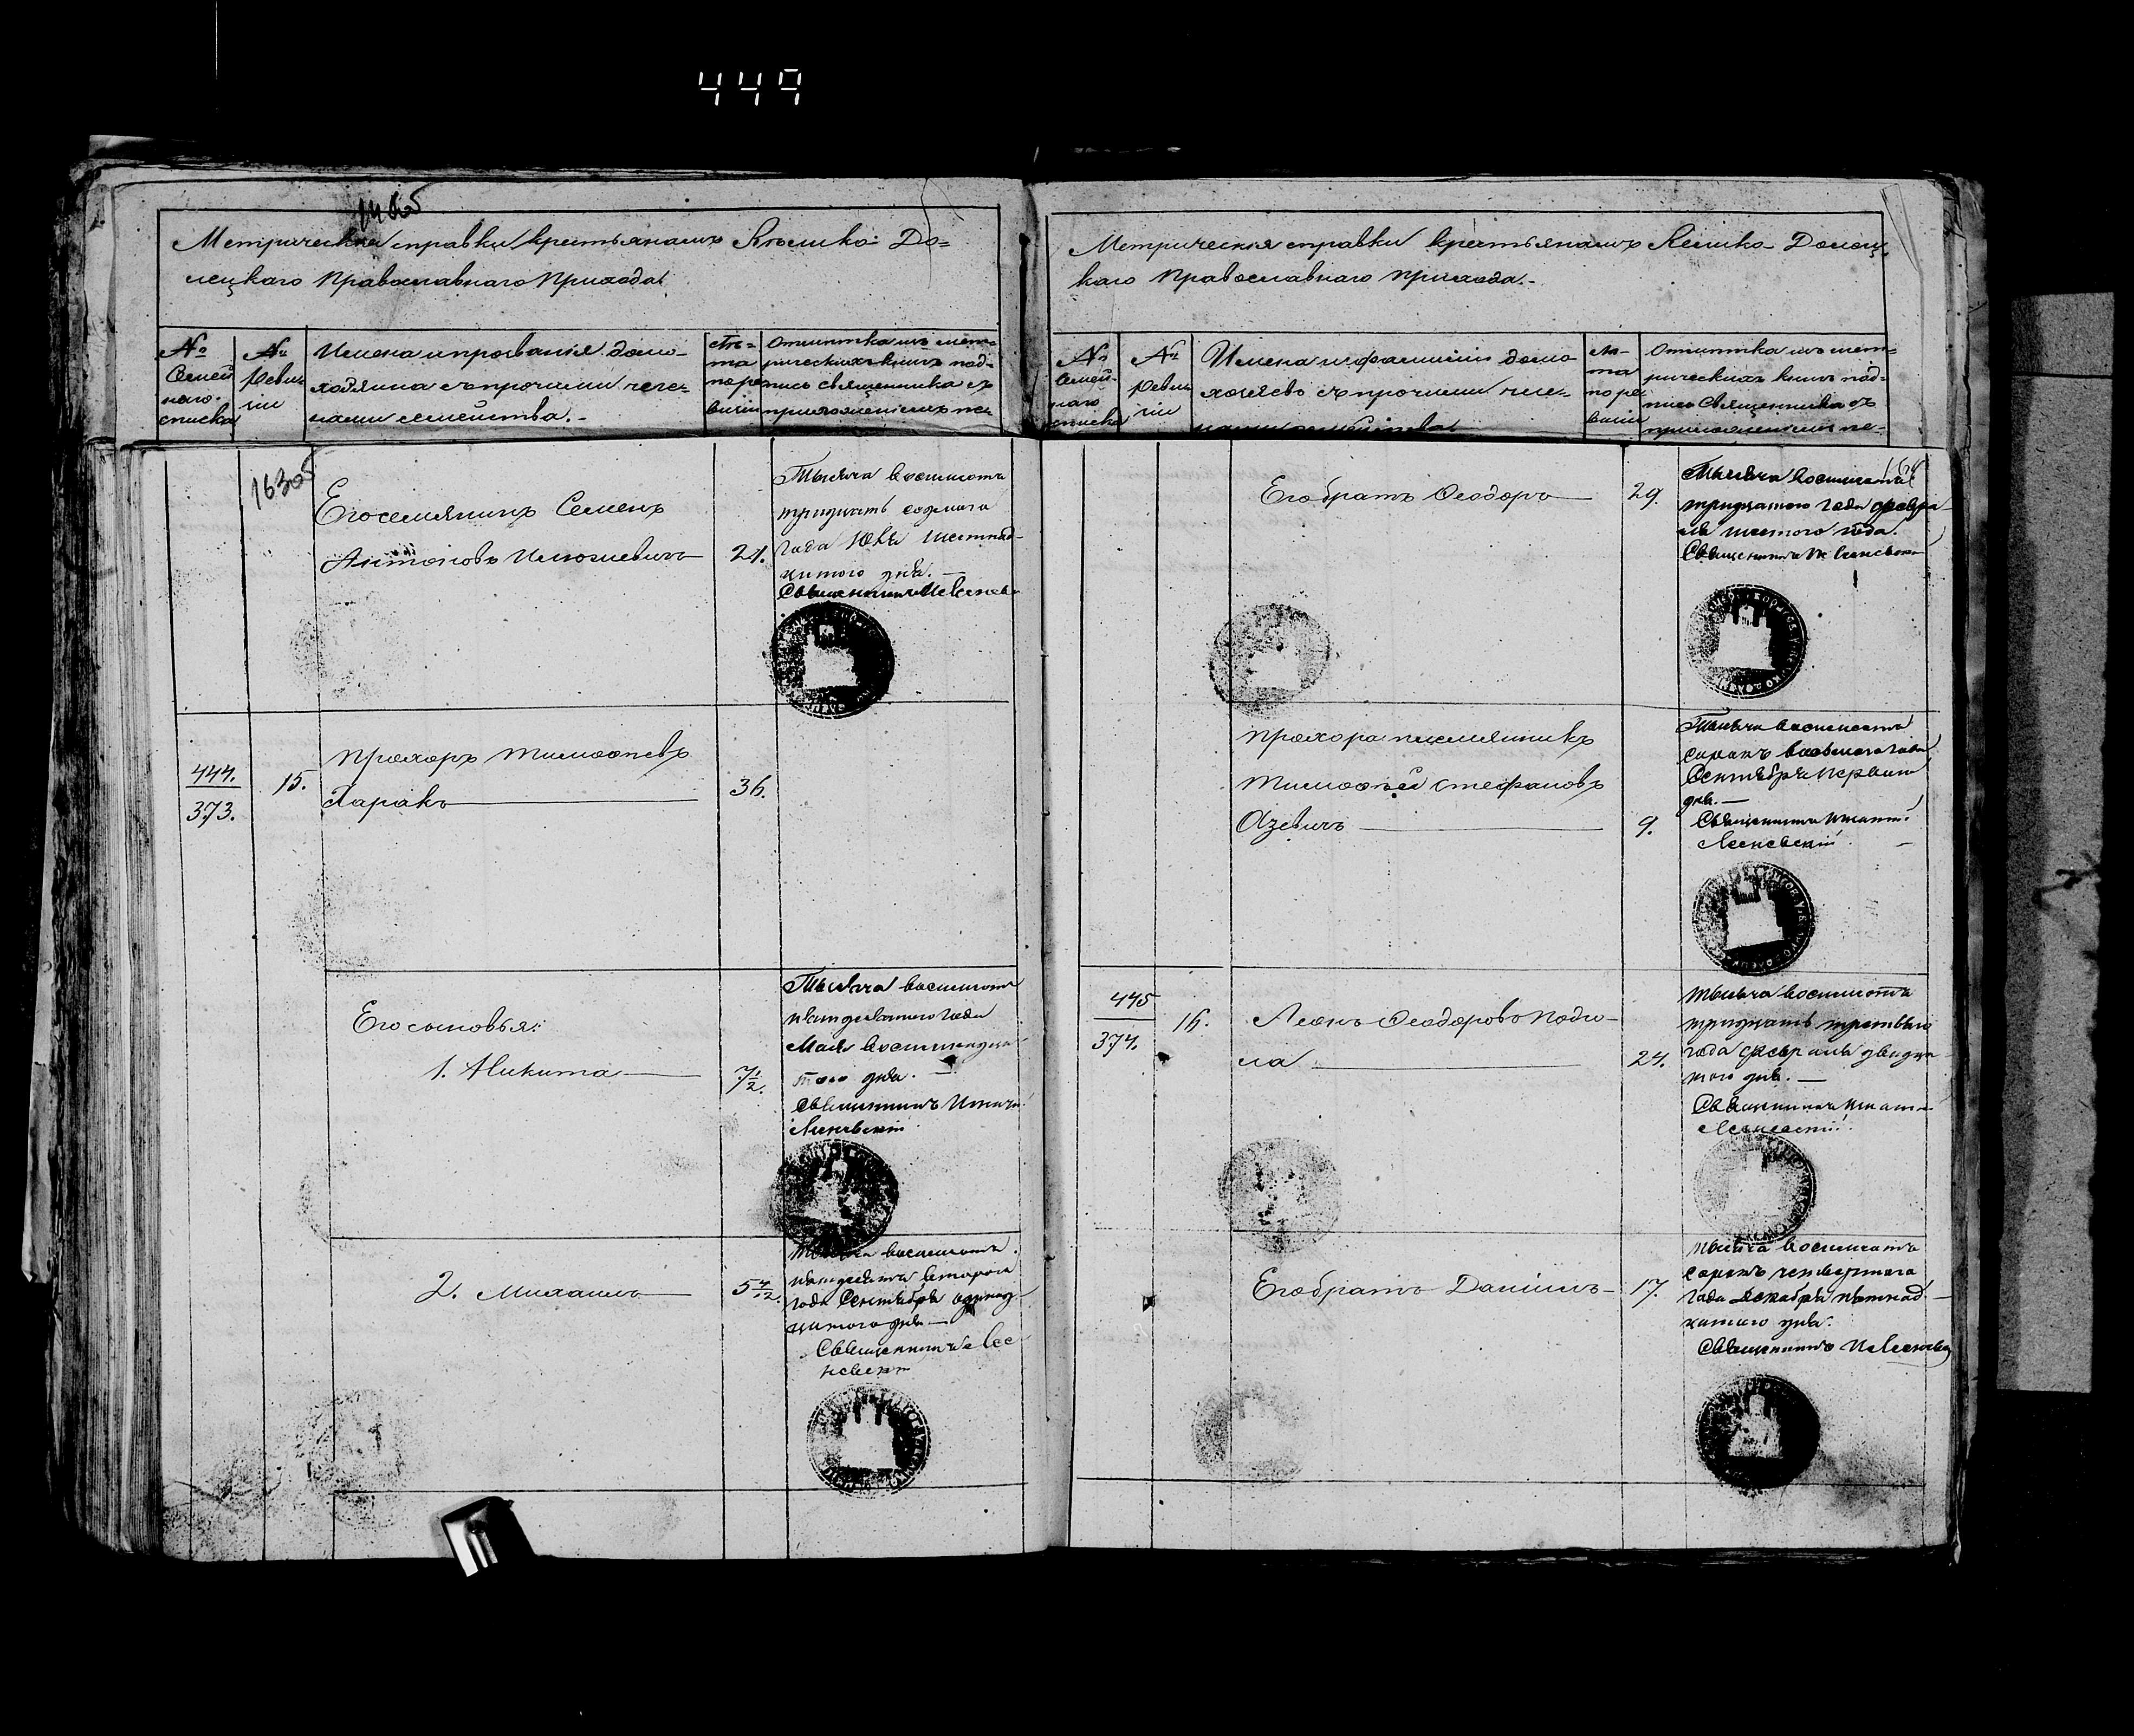 449
Метрическія справки крестьянамъ Велико-До=
лецкаго Православнаго Прихода
№
Семей
наго
списка
№
Реви
зіи
Имена и прозванія домо-
хозяина съ прочими чле-
нами семейства.-
Лѣ=
та
по ре
визіи
Отмѣтка изъ мет-
рическихъ книгъ под-
пись священника съ
приложеніемъ пе-
163об
Его семянинъ Семенъ
Антоновъ
24.
Тысяча восемьсотъ
тридцать седмаго
года Юля шестнад-
цатого дня.-
Священникъ
444.
373.
15.
Прохоръ Тимоѳеевъ
Харакъ
36.
Его сыновья:
1. Никита
7 1/2.
Тысяча восемьсотъ
пятдесятого года
Мая восемнадца
того дня.-
Священникъ Игнат
2. Михаилъ
5 4/12.
Тысяча восемьсотъ
пятдесятъ второго
года Сентября одинад-
цатого дня-
Священникъ
Метрическія справки крестьянамъ Велико-Долец-
каго Православнаго Прихода.-
№
Семей-
наго
списка
№
Реви
зіи
Имена и фамиліи домо
хозяевъ съ прочими чле-
Лѣ-
та
по ре
визіи
Отмѣтка изъ мет-
рическихъ книгъ под-
пись Священника съ
приложеніемъ пе-
Его братъ Ѳеодоръ
29.
Тысяча восемьсотъ
тридцатого года февра-
ля шестого
Священникъ
Прохора племянникъ
Тимоѳей Стефановъ
Азевичъ
9.
Тысяча восемьсотъ
сорокъ восьмого года
Сентября перваго
дня.-
Священникъ Игнат.
445
374.
16.
Леонъ Ѳеодоровъ Подго-
ла
24.
Тысяча восемьсотъ
тридцать третьяго
года февраля двадца
того дня.-
Священникъ Игнат
Его братъ Даніилъ
17.
Тысяча восемьсотъ
сорокъ четвертого
года Декабря пятнад-
цатого дня.
Священникъ